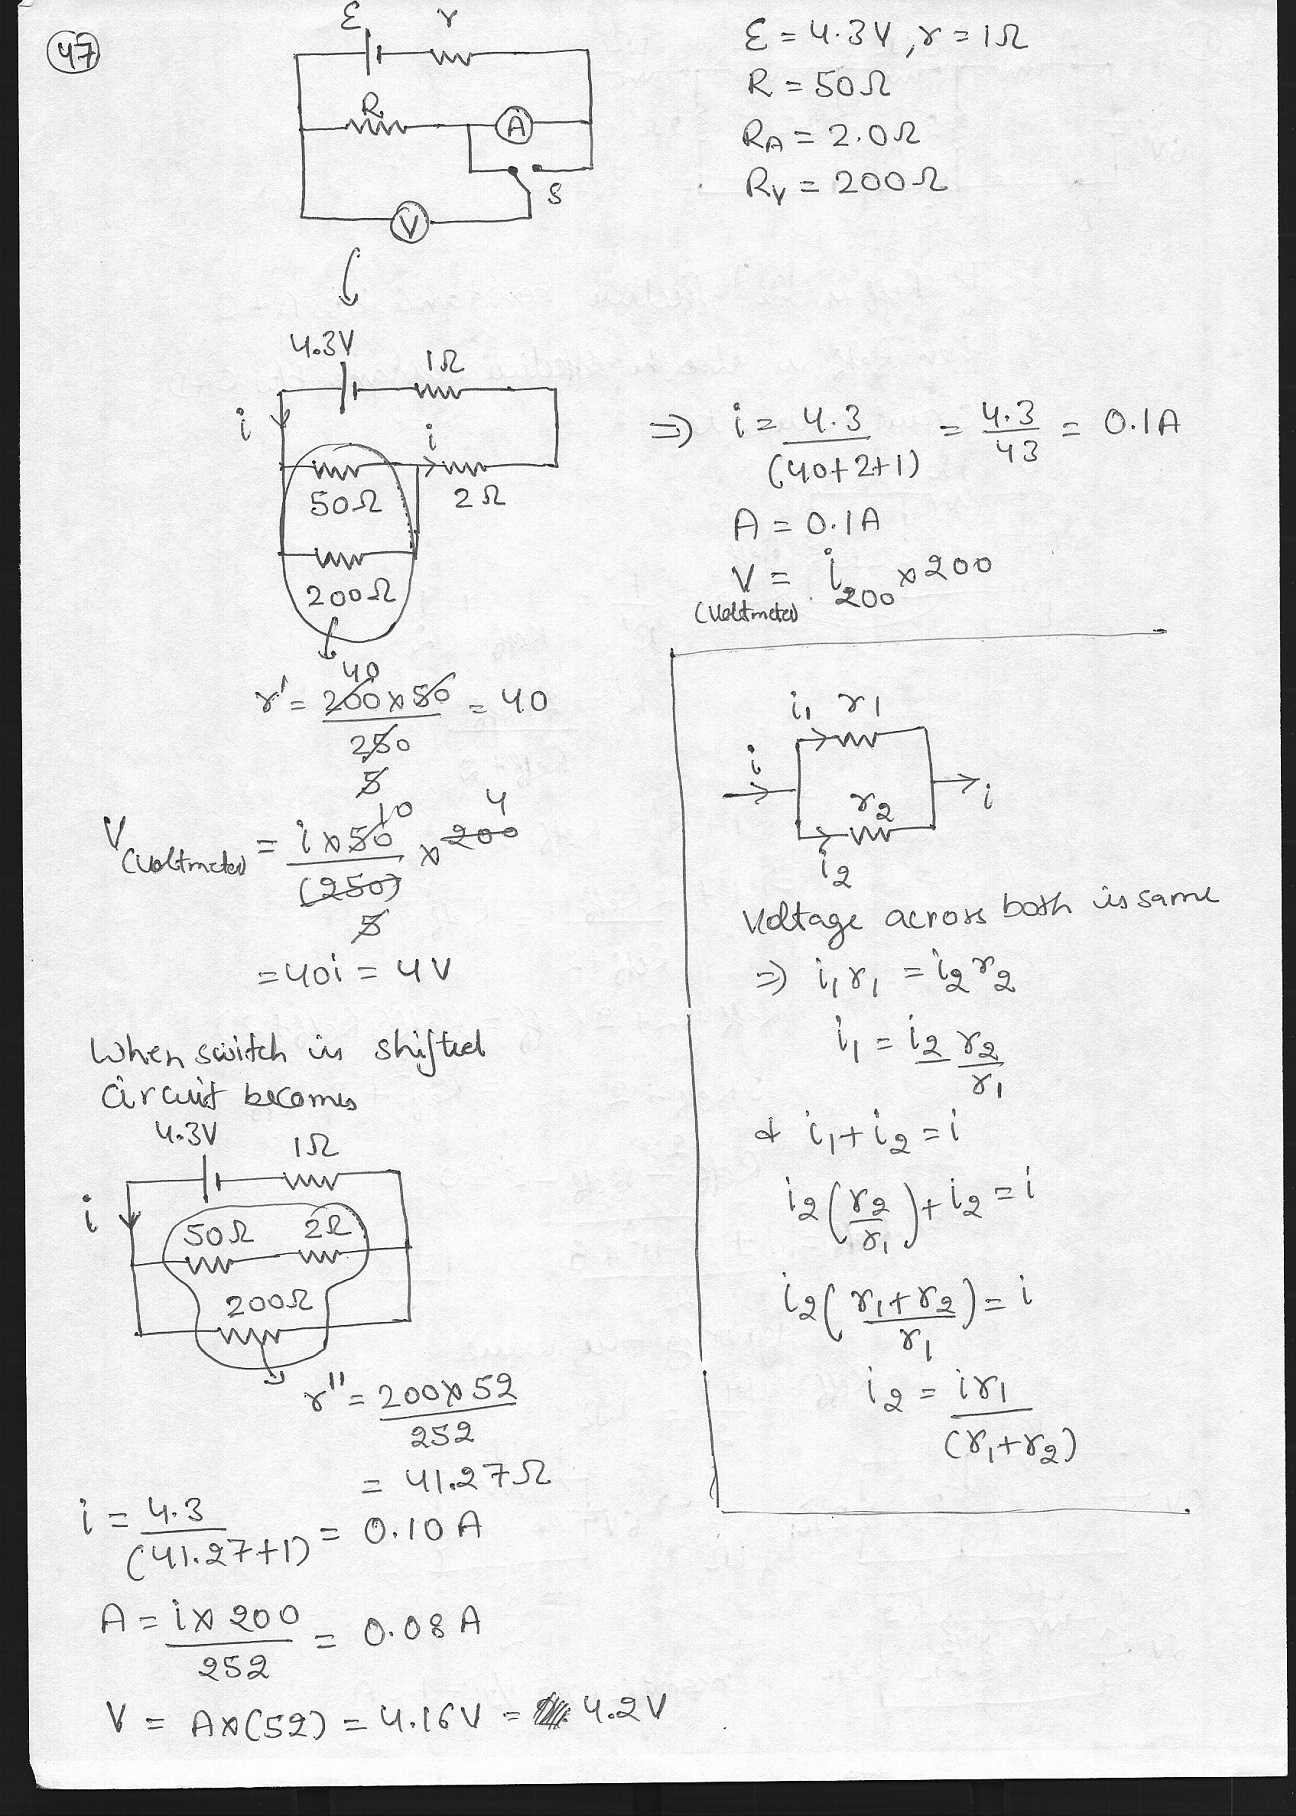 47
ε r
R
A
S
V
ε = 4.3V, r = 1Ω
R = 50Ω
R_A = 2.0Ω
R_V = 200Ω
4.3V 1Ω
i i
50Ω 2Ω
200Ω
⇒ i = 4.3/(40+2+1) = 4.3/43 = 0.1A
A = 0.1A
V = i_200 × 200
(Voltmeter)
r' = 200×50/250 = 40
40
5
V(Voltmeter) = i×50/(250) × 200
10 4
5
= 40i = 4V
When switch is shifted
circuit becomes
4.3V 1Ω
i
50Ω 2Ω
200Ω
r'' = 200×52/252
= 41.27Ω
i = 4.3/(41.27+1) = 0.10A
A = i×200/252 = 0.08A
V = A×(52) = 4.16V = 4.2V
i₁ r₁
i i
r₂
i₂
Voltage across both is same
⇒ i₁r₁ = i₂r₂
i₁ = i₂ r₂/r₁
& i₁+i₂ = i
i₂(r₂/r₁)+i₂ = i
i₂(r₁+r₂/r₁) = i
i₂ = ir₁/(r₁+r₂)